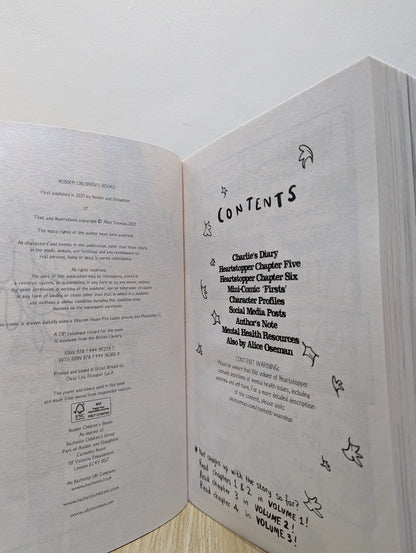 HODDER CHILDREN'S BOOKS
First published in 2021 by Hodder and Stoughton
17
Text and illustrations copyright © Alice Oseman, 2021
The moral rights of the author have been asserted.
All characters and events in this publication, other than those clearly
in the public domain, are fictitious and any resemblance to
real persons, living or dead, is purely coincidental.
All rights reserved.
No part of this publication may be reproduced, stored in
a retrieval system, or transmitted, in any form or by any means, without
the prior permission in writing of the publisher, nor be otherwise circulated
in any form of binding or cover other than that in which it is published
and without a similar condition including this condition being
imposed on the subsequent purchaser.
comic is drawn digitally using a Wacom Intuos Pro tablet directly into Photoshop CC.
A CIP catalogue record for this book
is available from the British Library.
ISBN 978 1 444 95279 7
Printed and bound in Great Britain by
Clays Ltd, Elcograf S.p.A.
The paper and board used in this book
are made from wood from responsible sources.
FSC
MIX
Hodder Children's Books
An imprint of
Hachette Children's Group
Part of Hodder and Stoughton
Carmelite House
50 Victoria Embankment
London EC4Y 0DZ
An Hachette UK Company
www.hachette.co.uk
www.hachettechildrens.co.uk
aliceoseman.com
CONTENTS
Charlie's Diary
Heartstopper Chapter Five
Heartstopper Chapter Six
Mini-Comic 'Firsts'
Character Profiles
Social Media Posts
Author's Note
Mental Health Resources
Also by Alice Oseman
CONTENT WARNING:
Please be aware that this volume of Heartstopper
contains depictions of mental health issues, including
anorexia and self-harm. For a more detailed description
of this content, please visit:
aliceoseman.com/content-warnings
Not caught up with the story so far?
Read chapters 1 & 2 in VOLUME 1!
Read chapter 3 in VOLUME 2!
Read chapter 4 in VOLUME 3!